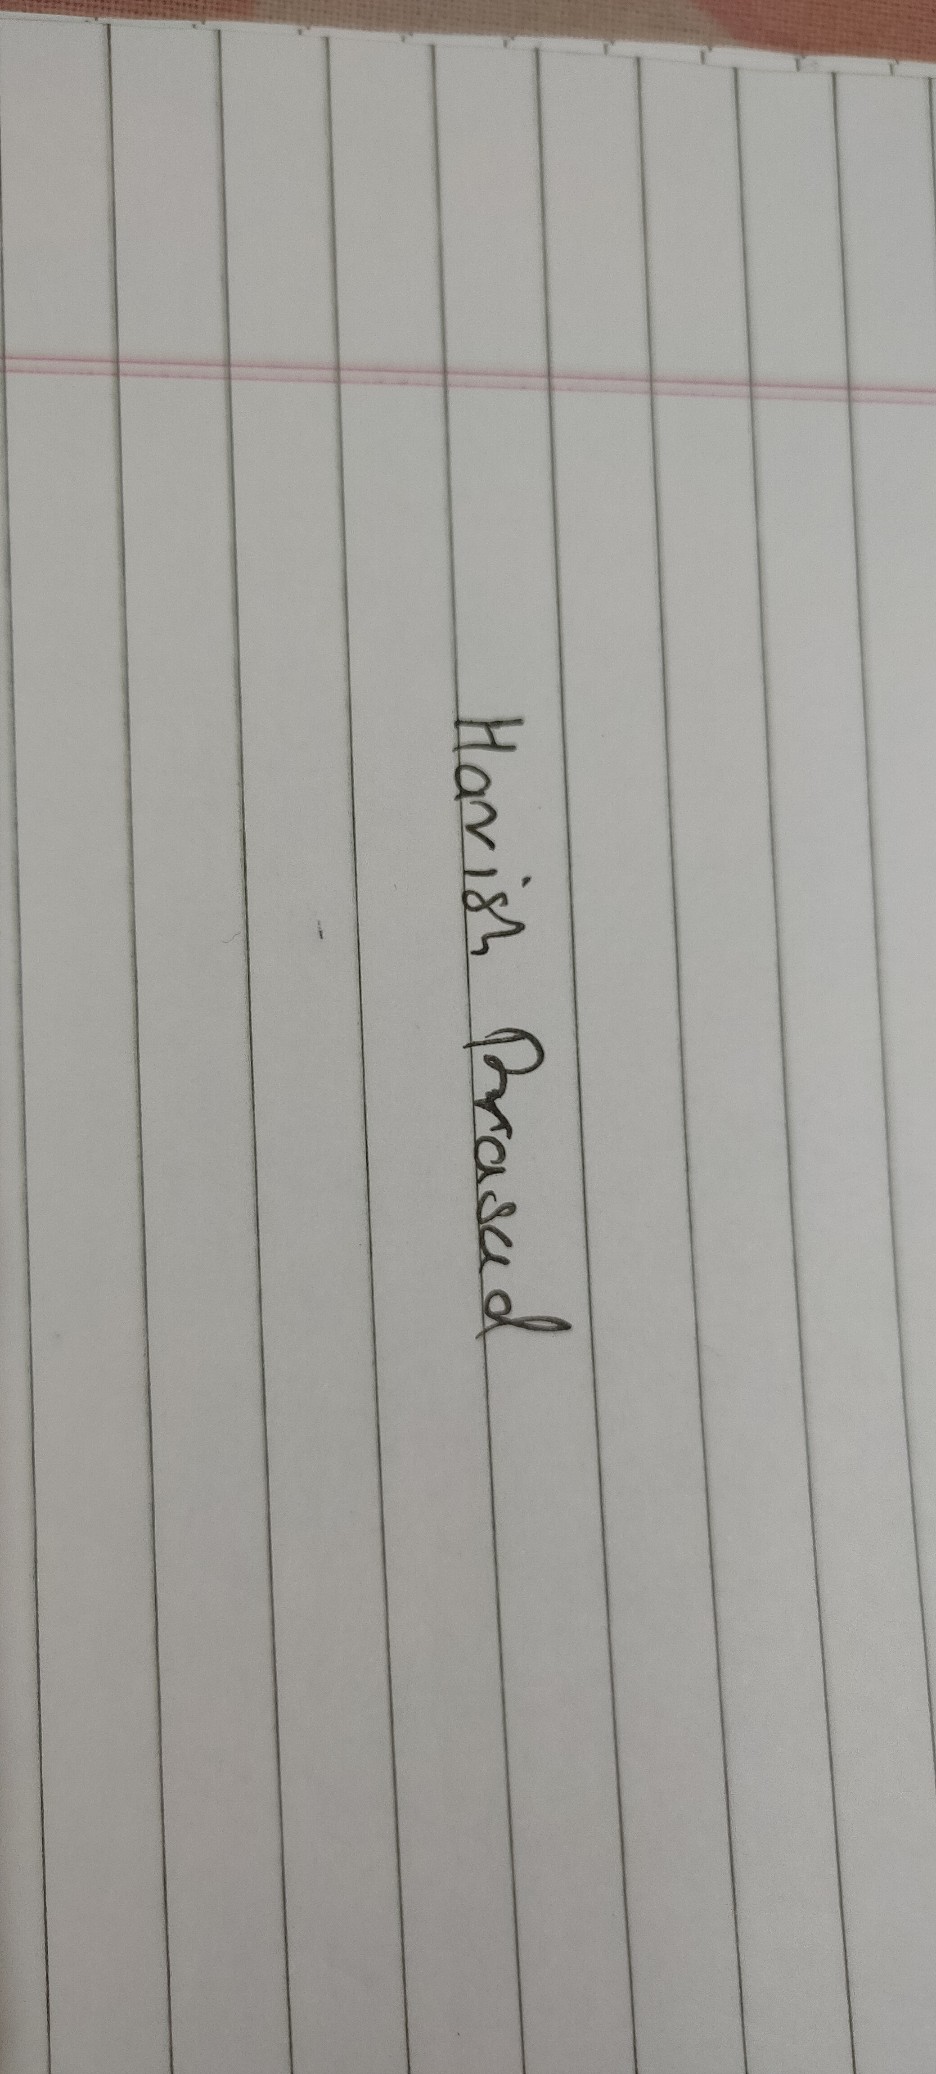 Harish Prasad